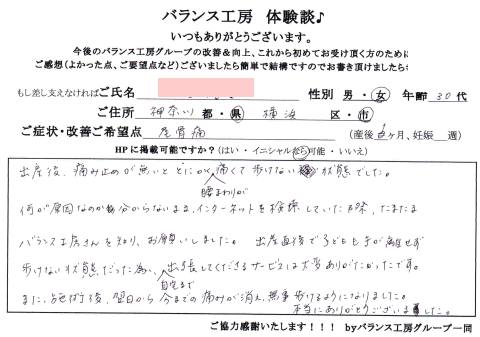 バランス工房 体験談♪
いつもありがとうございます。
今後のバランス工房グループの改善&向上、これから初めてお受け頂く方のために
ご感想(よかった点、ご要望点など)ございましたら簡単で結構ですのでお書き頂けましたら
もし差し支えなければご氏名 性別 男・女 年齢 30代
ご住所 神奈川 都・県 横浜 区・市
ご症状・改善ご希望点 尾骨痛 (産後 ヶ月、妊娠 週)
HPに掲載可能ですか?(はい・イニシャルなら可能・いいえ)
出産後、痛み止めが無いと とにかく痛くて 歩けない 状態でした。
腰まわりが
何が原因なのか分からないまま、インターネットを検索していた際、たまたま
バランス工房さんを知り、お願いしました。 出産直後で子どもと手が離せず
歩けない状態だった為、出張してくださるサービスは大変ありがたかったです。
自宅まで
また、施術後、翌日から 今までの痛みが消え、無事 歩けるようになりました。
本当にありがとうございました。
ご協力感謝いたします!!! byバランス工房グループ一同